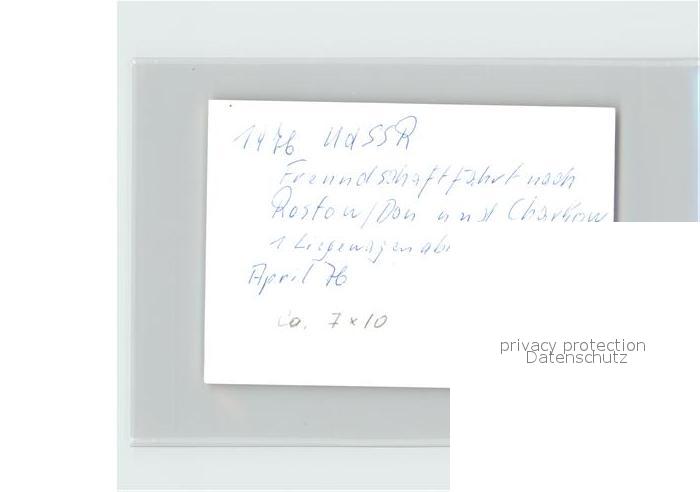 1976 UdSSR
Freundschaftfahrt nach
Rostow/Don und Charkow
1 Liegewagen
April 76
ca. 7 x 10
privacy protection
Datenschutz